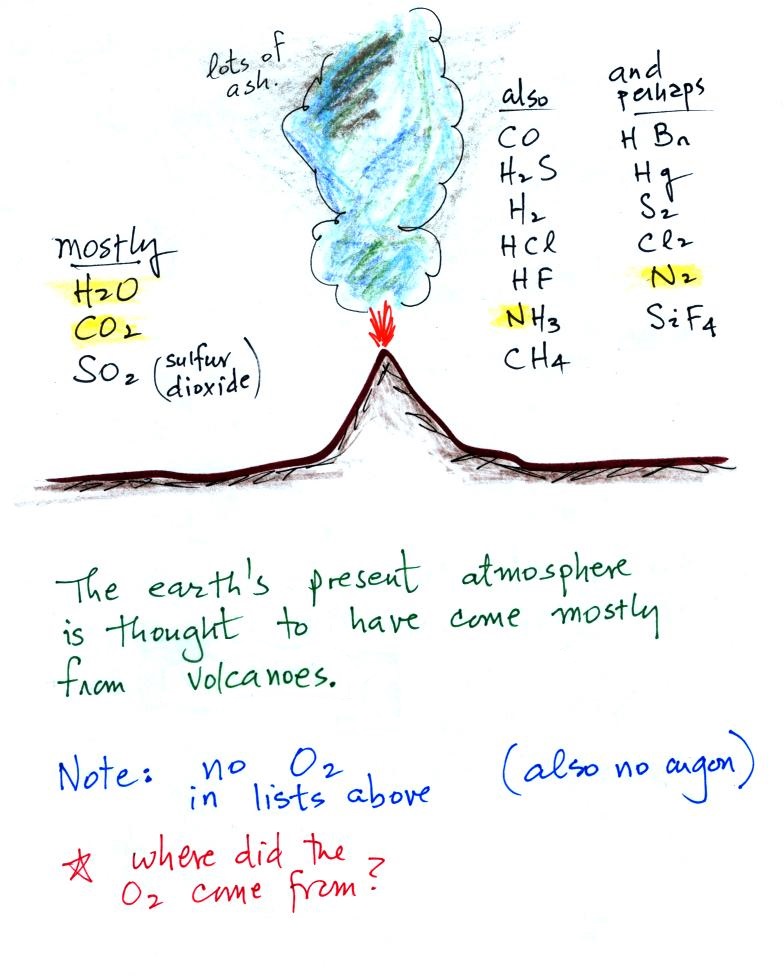 lots of
ash.
mostly
H2O
CO2
SO2 (sulfur
dioxide)
also
CO
H2S
H2
HCl
HF
NH3
CH4
and
perhaps
HBr
Hg
S2
Cl2
N2
SiF4
The earth's present atmosphere
is thought to have come mostly
from volcanoes.
Note: no O2 (also no argon)
in lists above
☆ where did the
O2 come from?